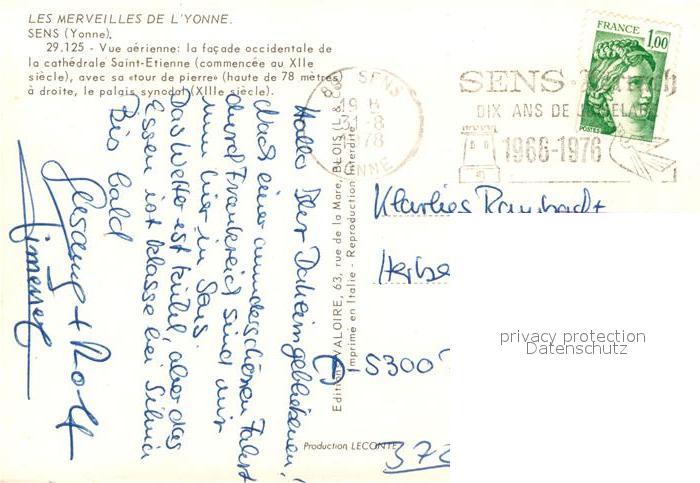 LES MERVEILLES DE L'YONNE.
SENS (Yonne).
29.125 - Vue aérienne: la façade occidentale de
la cathédrale Saint-Etienne (commencée au XIIe
siècle), avec sa «tour de pierre» (haute de 78 mètres)
à droite, le palais synodal (XIIIe siècle).
FRANCE
1,00
POSTES
SENS
19 H
31-8
1978
YONNE
SENS
DIX ANS DE
1966-1976
Hallo Ihr Daheimgebliebenen!
Nach einer wunderschönen Fahrt
durch Frankreich sind wir
nun hier in Sens.
Das Wetter ist kühl, aber das
Essen ist klasse
Bis bald
+ Rolf
Editions VALOIRE, 63, rue de la Mare, BLOIS (L. & C.)
Imprimé en Italie - Reproduction interdite
Herbe
5300
Production LECONTE
372
privacy protection
Datenschutz